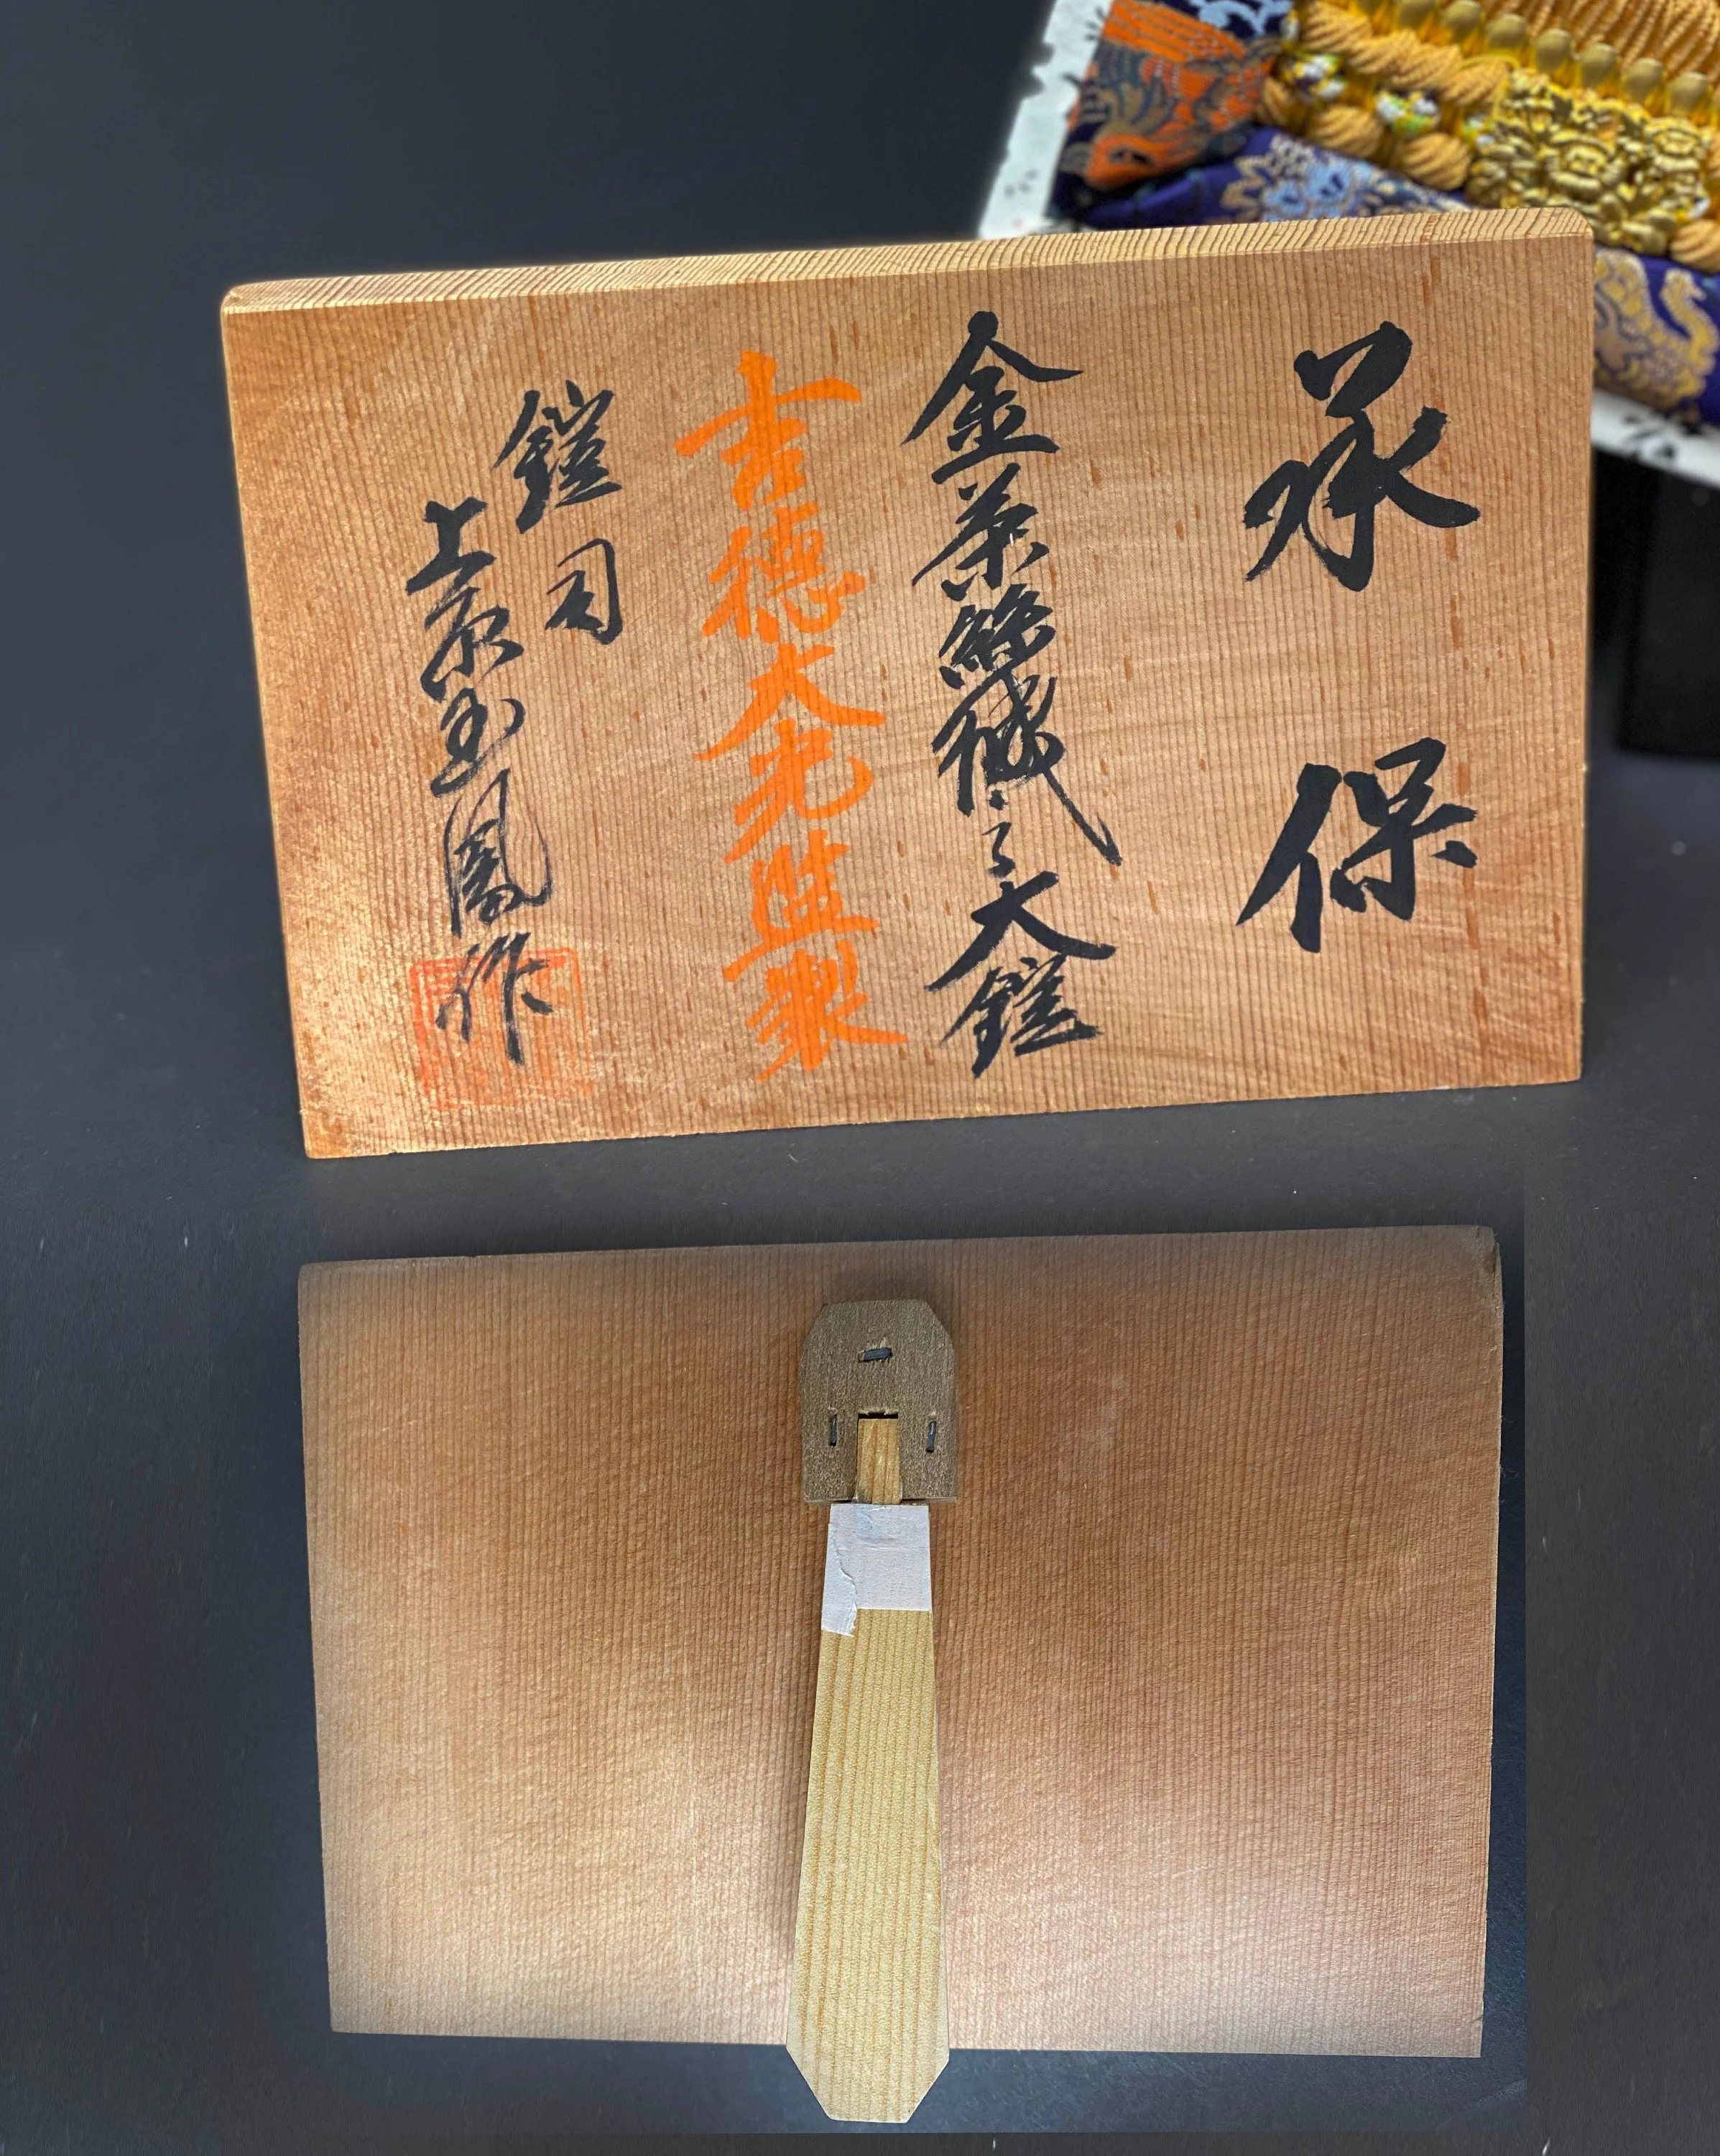 承保
金茶絲縅之大鎧
吉德大光監製
鎧司
上原玉鳳作